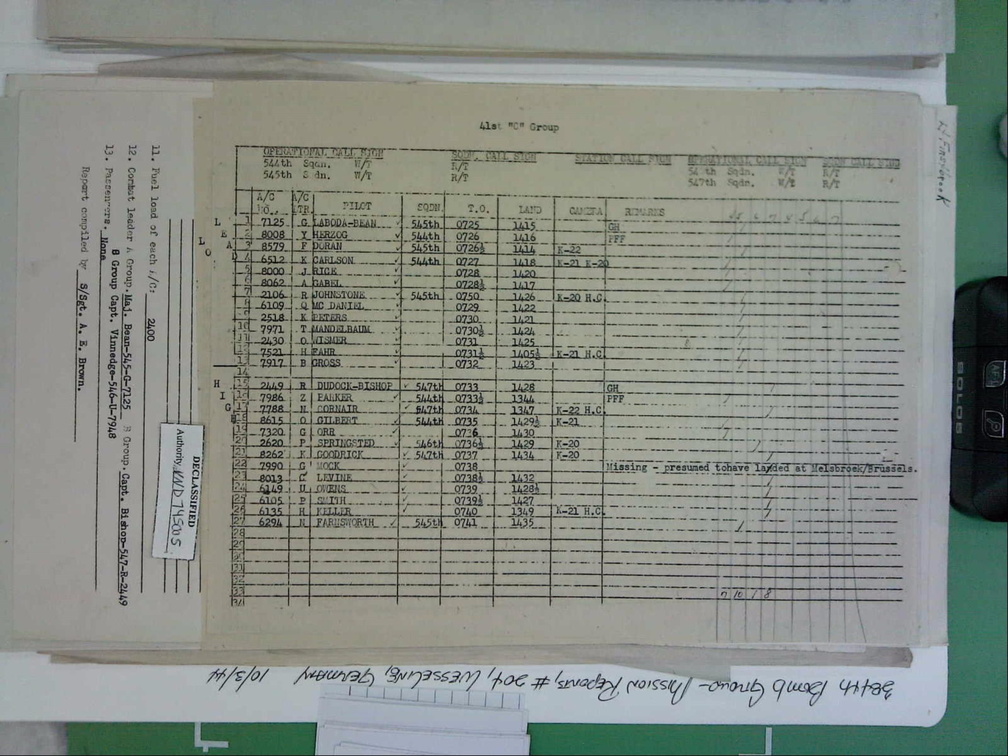 41st "C" Group
OPERATIONAL CALL SIGN SQDN. CALL SIGN STATION CALL SIGN OPERATIONAL CALL SIGN SQDN CALL SIGN
544th Sqdn. W/T R/T Sqdn. W/T R/T
545th Sqdn. W/T R/T 547th Sqdn. W/T R/T
A/C NO. A/C LTR. PILOT SQDN. T.O. LAND CAMERA REMARKS
L 1 7125 G LABODA-BEAN 545th 0725 1415 GH
E 2 8008 Y HERZOG 544th 0726 1416 PFF
A 3 8579 F DORAN 545th 0726½ 1414 K-22
D 4 6512 K CARLSON 544th 0727 1418 K-21 K-20
5 8000 J RICE 0728 1420
6 8062 A GABEL 0728½ 1417
7 2106 R JOHNSTONE 545th 0750 1426 K-20 H.C.
8 6109 Q MC DANIEL 0729 1422
9 2518 K PETERS 0730 1421
10 7971 T MANDELBAUM 0730½ 1424
11 2430 O WISMER 0731 1425
12 7521 H FAHR 0731½ 1405½ K-21 H.C.
13 7917 B GROSS 0732 1423
14
H 15 2449 R DUDOCK-BISHOP 547th 0733 1428 GH
I 16 7986 Z PARKER 544th 0733½ 1344 PFF
G 17 7788 CORNAIR 547th 0734 1347 K-22 H.C.
H 18 8615 O GILBERT 544th 0735 1429½ K-21
19 7320 G ORE 0736 1430
20 2620 P SPRINGSTED 546th 0736½ 1429 K-20
21 8262 K GOODRICK 547th 0737 1434 K-20
22 7990 G MOCK 0738 Missing - presumed tohave landed at Melsbroek/Brussels.
23 8013 C LEVINE 0738½ 1432
24 6149 U OWENS 0739 1428½
25 6105 B SMITH 0739½ 1427
26 6135 H KELLER 0740 1349 K-21 H.C.
27 6294 N FARNSWORTH 545th 0741 1435
28
29
30
31
32
33 7 10 1 8
34
11. Fuel load of each A/C: 2400
12. Combat leader A Group. Maj. Bean-545-G-7125 B Group. Capt. Bishop-547-R-2449
B Group Capt. Vinnedge-546-U-7948
13. Passengers. None
Report compiled by S/Sgt. A. E. Brown.
DECLASSIFIED
Authority NND 745005
384th Bomb Group - Mission Reports, #204, WESSELING, GERMANY 10/3/44